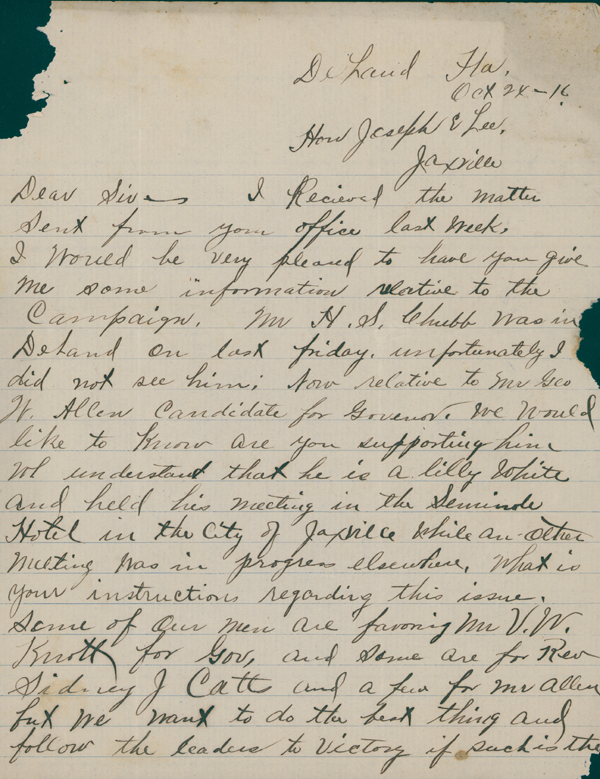 DeLand Fla.
Oct 24-16
Hon Joseph E Lee.
Jaxville
Dear Sir I Recieved the matter
sent from your office last week.
I would be very pleased to have you give
me some information relative to the
Campaign. Mr H. S. Chubb was in
DeLand on last friday. unfortunately I
did not see him; Now relative to Mr Geo
W. Allen Candidate for Govenor. We would
like to know are you supporting him
We understand that he is a lilly White
and held his meeting in the Seminole
Hotel in the City of Jaxville while an-other
meeting was in progress elsewhere. What is
your instructions regarding this issue.
some of our men are favoring Mr V. W.
Knott for Gov, and some are for Rev
Sidney J Catts and a few for Mr Allen
but we want to do the best thing and
follow the leaders to victory if such is the